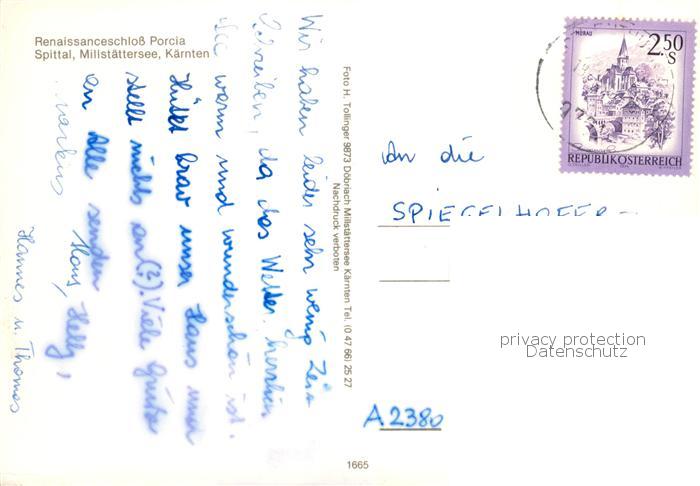 Renaissanceschloß Porcia
Spittal, Millstättersee, Kärnten
Wir haben leider sehr wenig Zeit
Schreiben, da das Wetter herrlich
See warm und wunderschön ist.
Hütet brav unser Haus und
stellt nichts an(?). Viele Grüße
an Alle senden
Markus, Hans, Helly,
Hannes u. Thomas
Foto H. Tollinger 9873 Döbriach Millstättersee Kärnten Tel. (0 47 66) 25 27
Nachdruck verboten
MURAU
2.50
S
REPUBLIK ÖSTERREICH
An die
SPIEGELHOFER-
privacy protection
Datenschutz
A 2380
1665